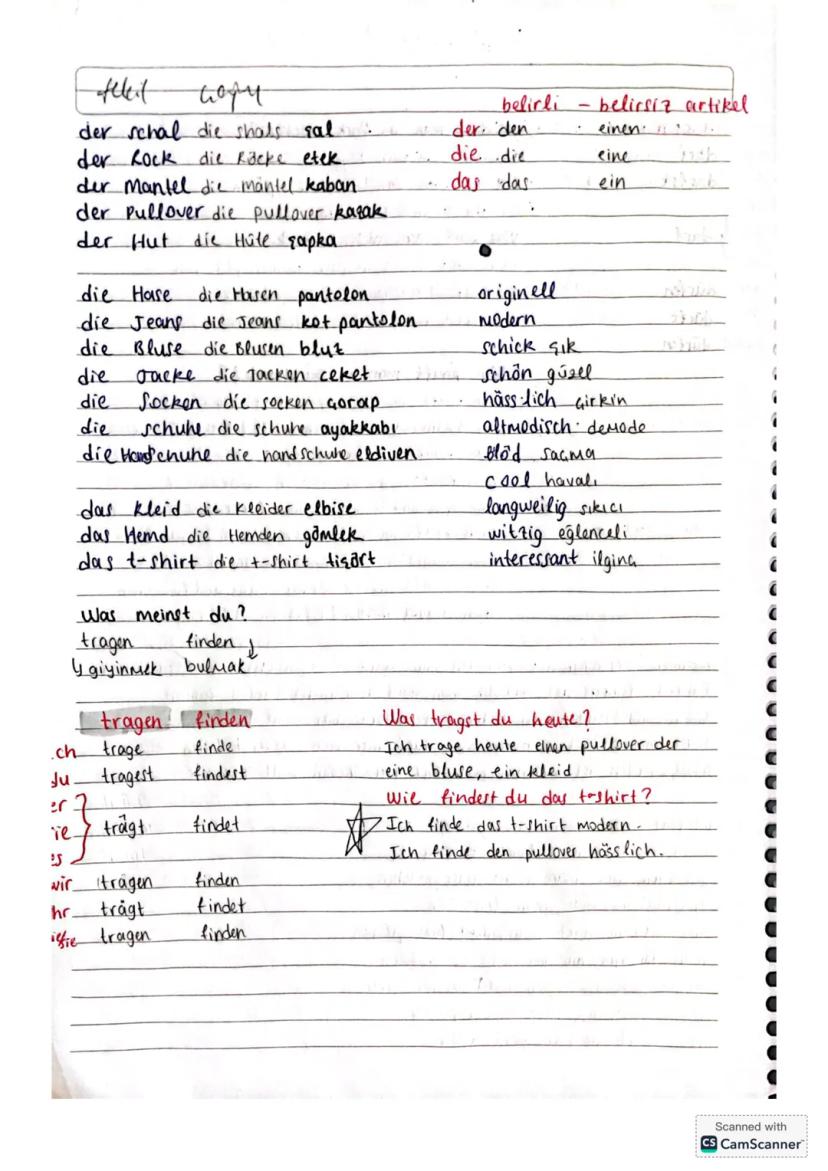 tekil çoğul
belirli - belirsiz artikel
der schal die shals şal
der Rock die Röcke etek
der Mantel die mäntel kaban
der Pullover die pullover kazak
der Hut die Hüte şapka
der den einen
die die eine
das das ein
die Hose die Hosen pantolon
die Jeans die Jeans kot pantolon
die Bluse die Blusen bluz
die Jacke die Jacken ceket
die Socken die socken çorap
die schuhe die schuhe ayakkabı
die Handschuhe die handschuhe eldiven
das kleid die kleider elbise
das Hemd die Hemden gömlek
das t-shirt die t-shirt tişört
originell
modern
schick şık
schön güzel
hässlich çirkin
altmodisch demode
blöd saçma
cool havalı
langweilig sıkıcı
witzig eğlenceli
interessant ilginç
Was meinst du?
tragen finden
giyinmek bulmak
tragen finden
ch trage finde
du tragest findest
er
ie trägt findet
es
wir trägen finden
hr trägt findet
sie tragen finden
Was tragst du heute?
Ich trage heute einen pullover der
eine bluse, ein kleid
Wie findest du das t-shirt?
Ich finde das t-shirt modern.
Ich finde den pullover hässlich.
Scanned with
CS CamScanner